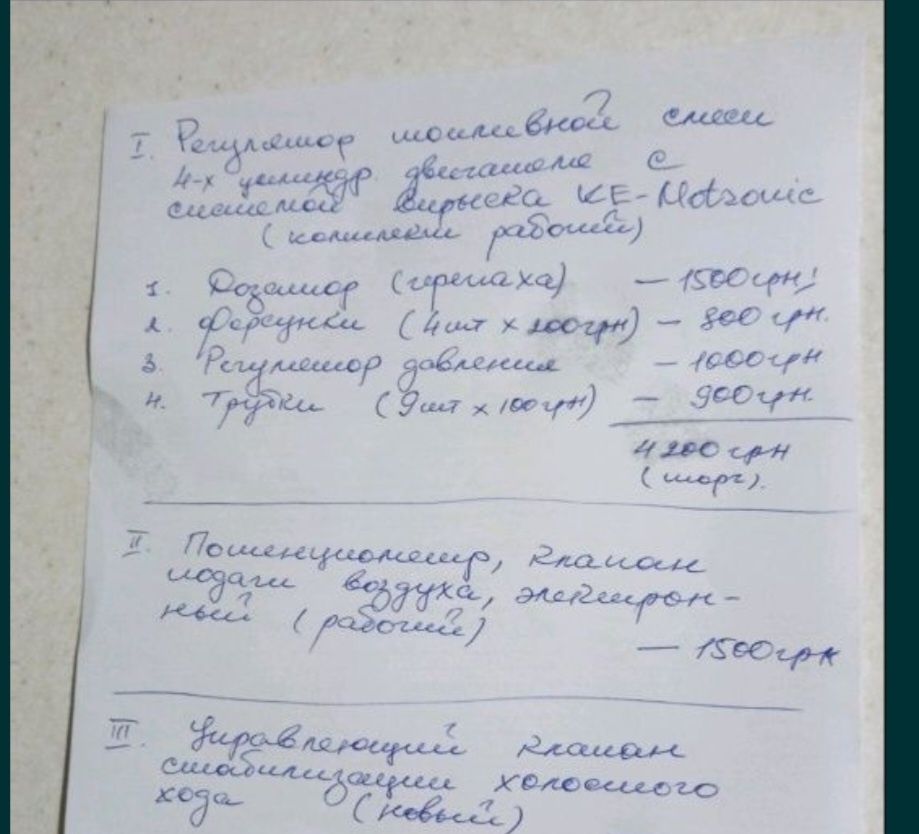 I. Регулятор топливной смеси
4-х цилиндр. двигателя с
системой впрыска KE-Motronic
(комплект рабочий)
1. Дозатор (черепаха) — 1500грн!
2. Форсунки (4шт х 200грн) — 800грн.
3. Регулятор давления — 1000грн
4. Трубки (9шт х 100грн) — 900грн.
4200грн
(торг).
II. Потенциометр, клапан
подачи воздуха, электрон-
ный (рабочий)
— 1500грн
III. Управляющий клапан
стабилизации холостого
хода (новый)